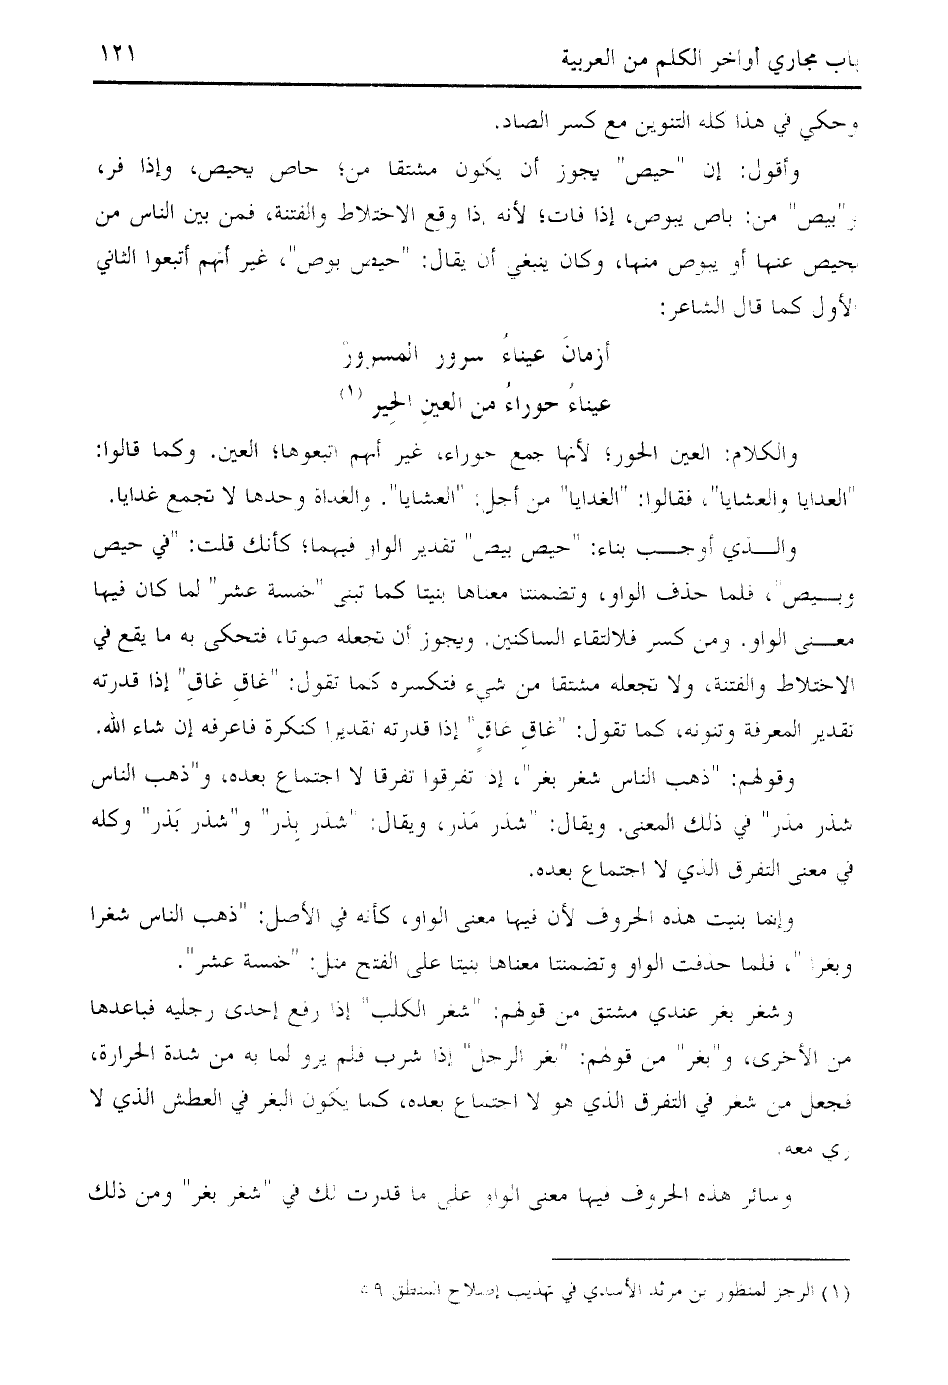 باب مجاري أواخر الكلم من العربية ١٢١
وحكي في هذا كله التنوين مع كسر الصاد.
وأقول: إن "حيص" يجوز أن يكون مشتقا من؛ حاص يحيص، وإذا فر،
و"بيص" من: باص يبوص، إذا فات؛ لأنه إذا وقع الاختلاط والفتنة، فمن بين الناس من
يحيص عنها أو يبوص منها، وكان ينبغي أن يقال: "حيص بوص"، غير أنهم أتبعوا الثاني
الأول كما قال الشاعر:
أزمانَ عيناءُ سرور المسرورْ
عيناءُ حوراءُ من العينِ الحِير (١)
والكلام: العين الحور؛ لأنها جمع حوراء، غير أنهم اتبعوها؛ العين. وكما قالوا:
"الغدايا والعشايا"، فقالوا: "الغدايا" من أجل: "العشايا". والغداة وحدها لا تجمع غدايا.
والـــذي أوجـــب بناء: "حيص بيص" تقدير الواو فيهما؛ كأنك قلت: "في حيص
وبـــيص"، فلما حذف الواو، وتضمنتا معناها بنيتا كما تبنى "خمسة عشر" لما كان فيها
معـــنى الواو. ومن كسر فلالتقاء الساكنين. ويجوز أن تجعله صوتا، فتحكى به ما يقع في
الاختلاط والفتنة، ولا تجعله مشتقا من شيء فتكسره كما تقول: "غاقِ غاقِ" إذا قدرته
تقدير المعرفة وتنونه، كما تقول: "غاقٍ غاقٍ" إذا قدرته تقديرا كنكرة فاعرفه إن شاء الله.
وقولهم: "ذهب الناس شغر بغر"، إذ تفرقوا تفرقا لا اجتماع بعده، و"ذهب الناس
شذر مذر" في ذلك المعنى. ويقال: "شذر مَذر، ويقال: "شذر بِذر" و"شذر بَذر" وكله
في معنى التفرق الذي لا اجتماع بعده.
وإنما بنيت هذه الحروف لأن فيها معنى الواو، كأنه في الأصل: "ذهب الناس شغرا
وبغرا"، فلما حذفت الواو وتضمنتا معناها بنيتا على الفتح مثل: "خمسة عشر".
وشغر بغر عندي مشتق من قولهم: "شغر الكلب" إذا رفع إحدى رجليه فباعدها
من الأخرى، و"بغر" من قولهم: "بغر الرجل" إذا شرب فلم يرو لما به من شدة الحرارة،
فجعل من شغر في التفرق الذي هو لا اجتماع بعده، كما يكون البغر في العطش الذي لا
ري معه.
وسائر هذه الحروف فيها معنى الواو على ما قدرت لك في "شغر بغر" ومن ذلك
(١) الرجز لمنظور بن مرثد الأسدي في تهذيب إصلاح المنطق